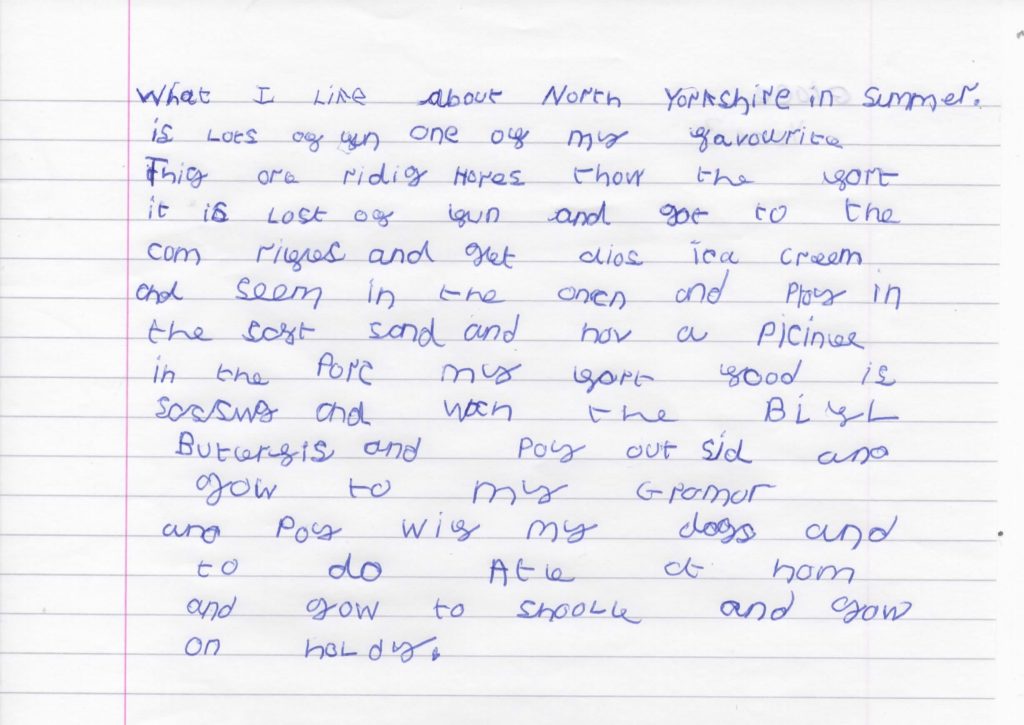 What I Like about North Yorkshire in Summer.
is Lots of fun one of my favourite
Thig are ridig Hores thow the fort
it is Lost of fun and got to the
com rigres and get dios ice creem
and seem in the onen and Play in
the soft sand and hav a Picinee
in the Parc my fort food is
and the
Buterfis and Pay out sid and
gow to my Gramar
and Pay wig my dogs and
to do at hom
and gow to and gow
on holdy.